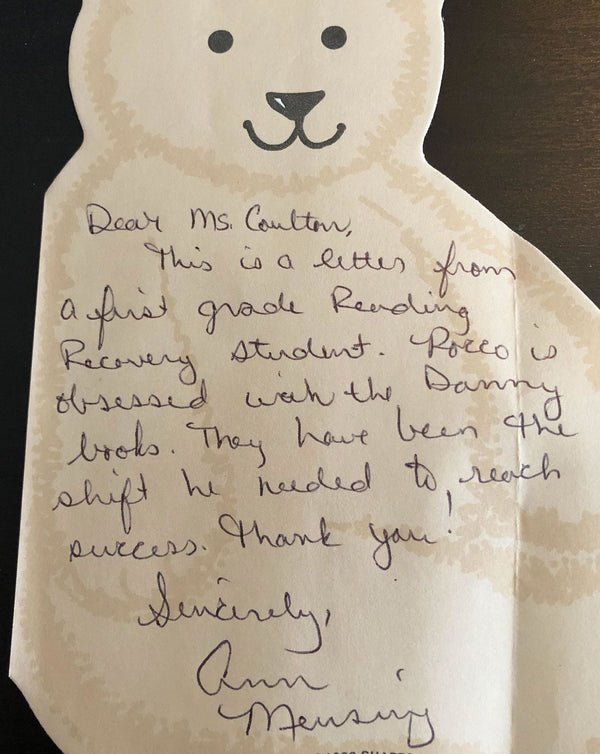 Dear Ms. Coulton,
This is a letter from
a first grade Reading
Recovery student. Rocco is
obsessed with the Danny
books. They have been the
shift he needed to reach
success. Thank you!
Sincerely,
Ann
Mensing